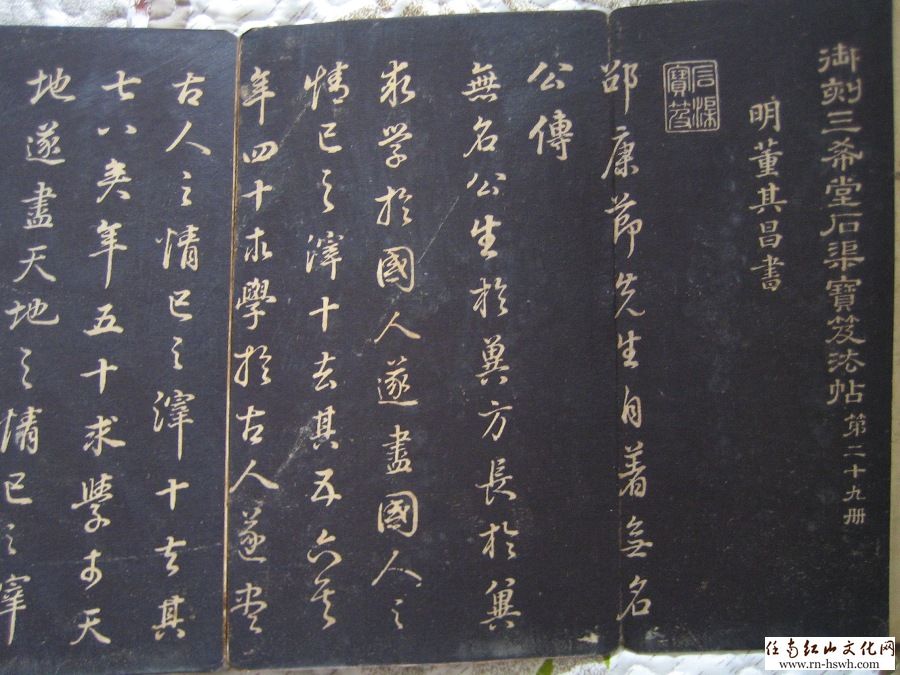 御刻三希堂石渠寶笈法帖 第二十九册
明董其昌書
石渠寶笈
邵康節先生自著無名
公傳
無名公生於冀方長於冀
求學於國人遂盡國人之
情已之滓十去其五六矣
年四十求學於古人遂盡
古人之情已之滓十去其
七八矣年五十求學于天
地遂盡天地之情已之滓
任南红山文化网
www.rn-hswh.com